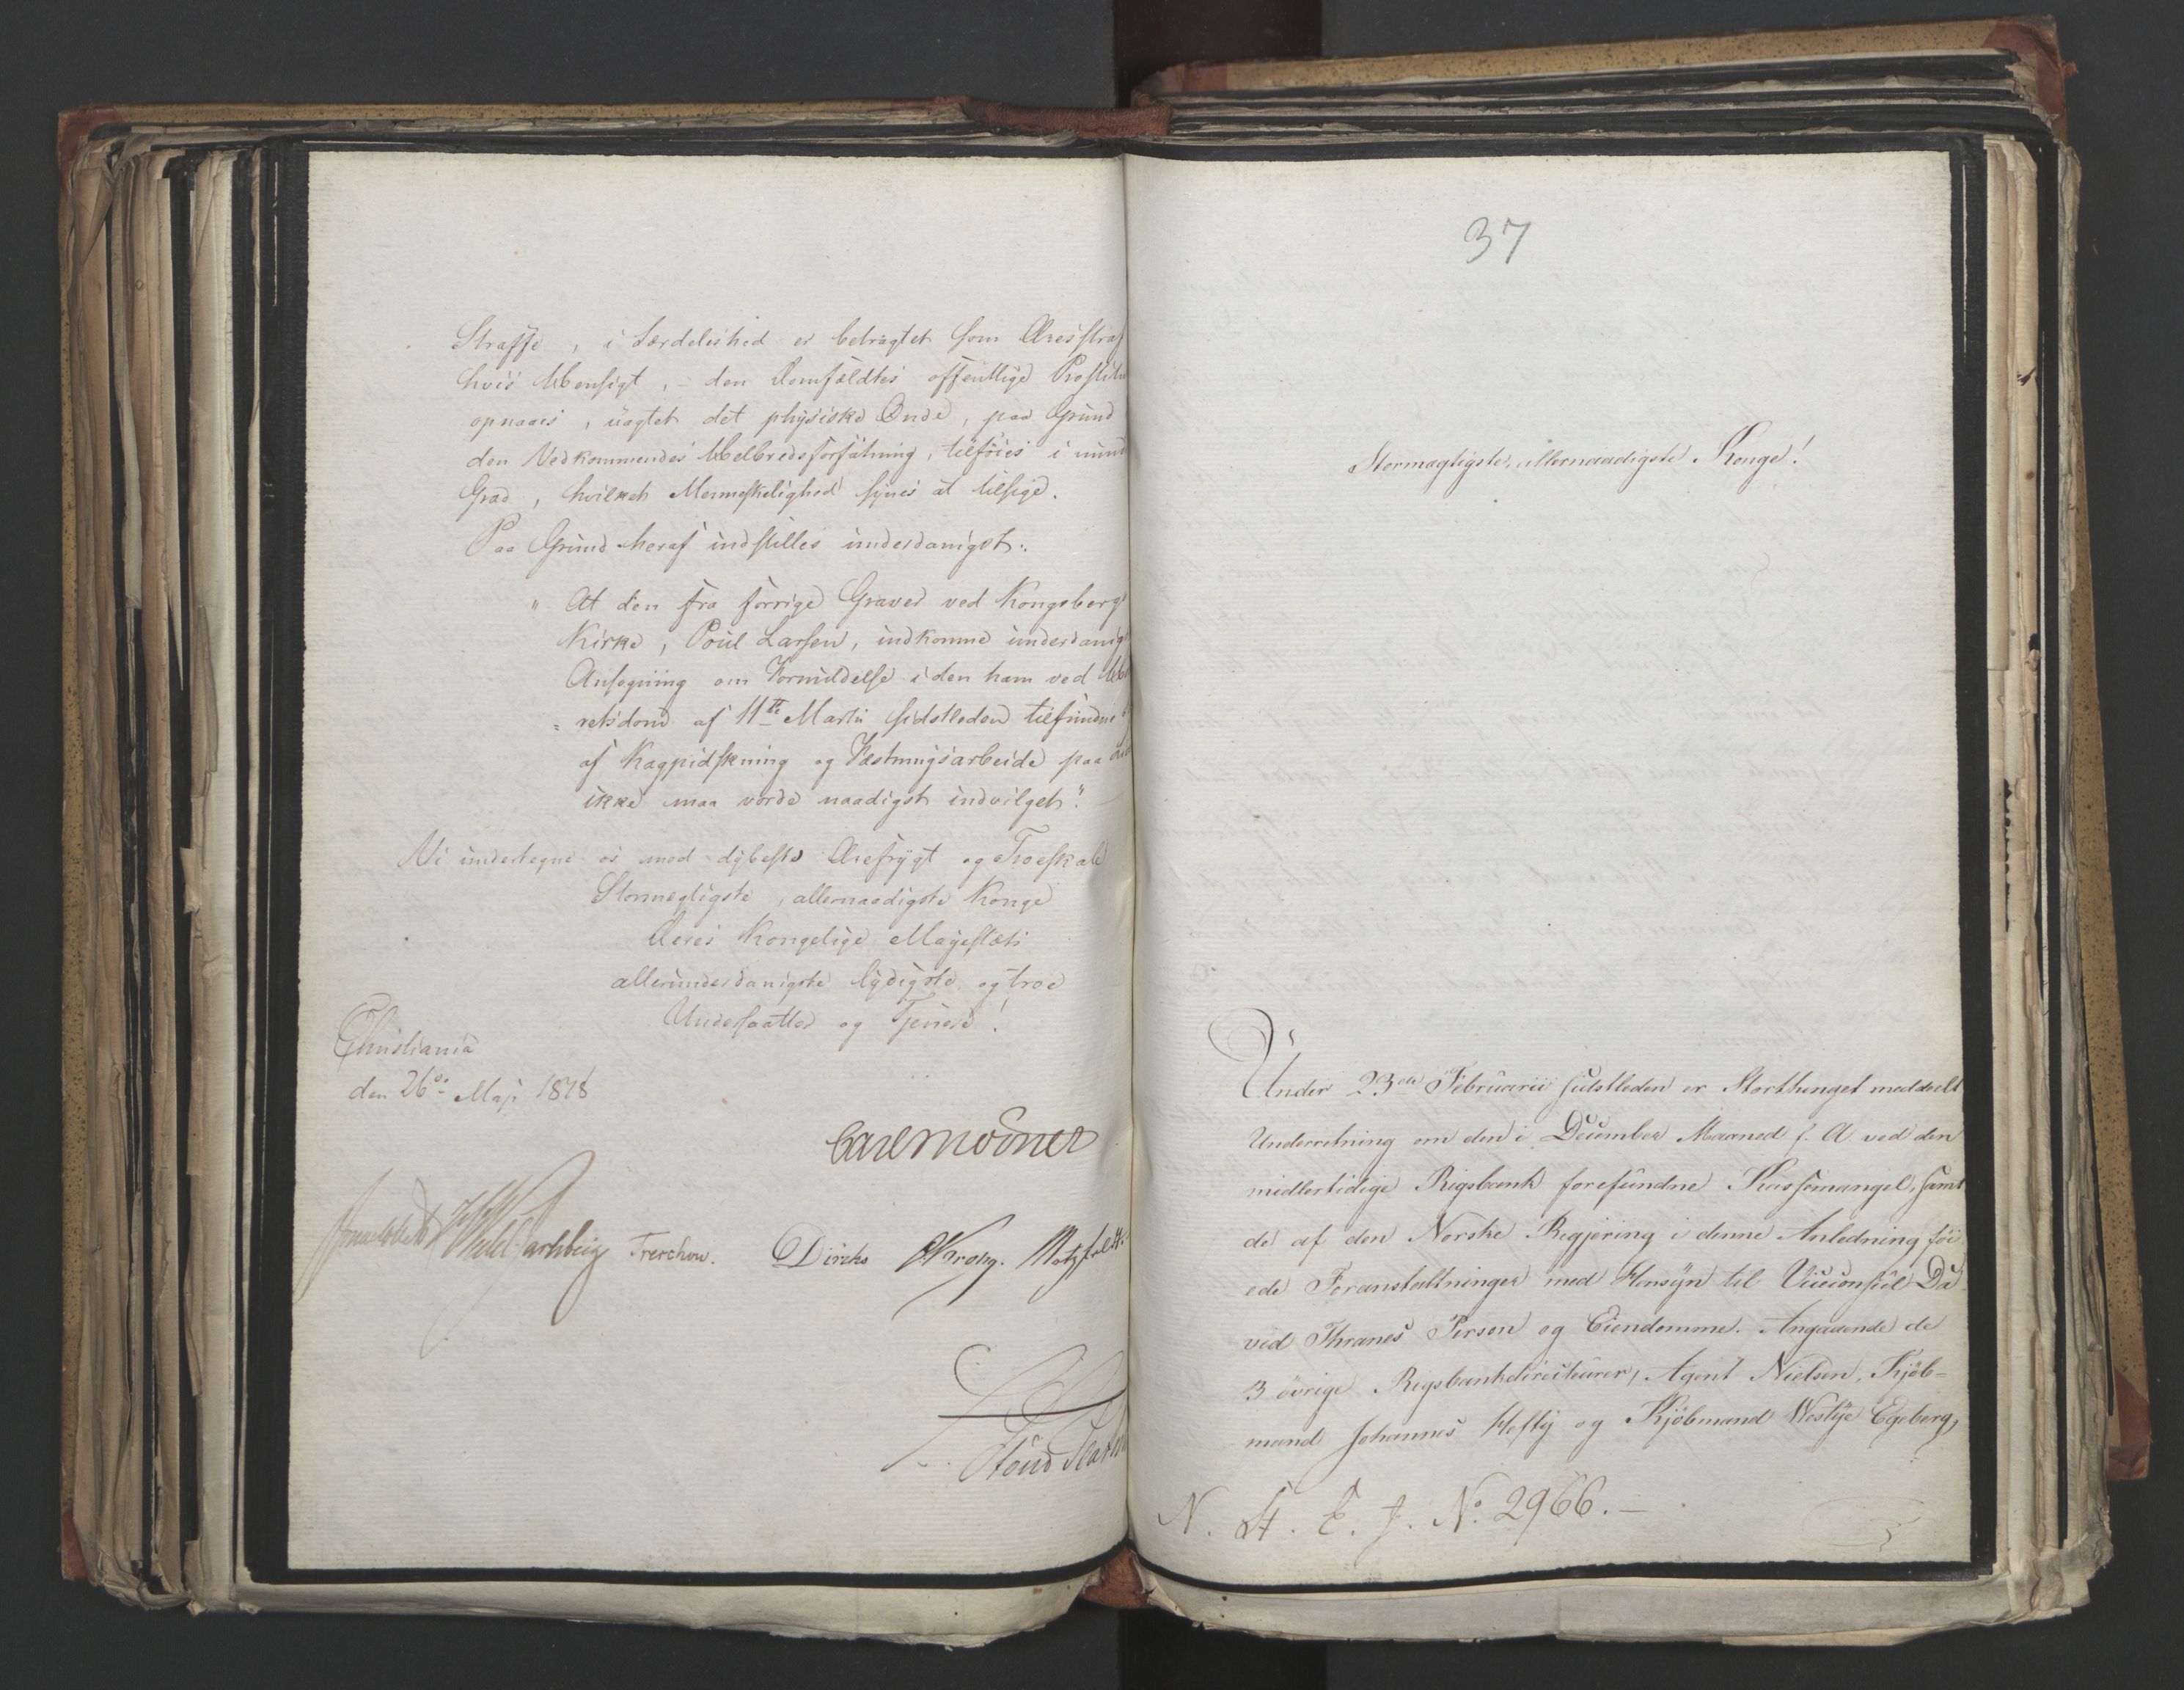 Straffe, i særdeleshed er betragtet som Æresstraf
hvis Hensigt, – den Domfældtes offentlige Prostitu
opnaaes, uagtet det physiske Onde, paa Grund
den Vedkommendes Helbredsforfatning, tilföies i mind
Grad, hvilket Menneskelighed synes at tilsige.
Paa Grund heraf indstilles underdanigst:
„At den fra forrige Graver ved Kongsberg
Kirke, Poul Larsen, indkomne underdanig
Ansøgning om Formildelse i den ham ved
retsdom af 11te Martii sidstleden tilfundne
af Kagpidskning og Fæstningsarbeide paa
ikke maa vorde naadigst indvilget“.
Vi undertegne os med dybeste Ærefrygt og Troeskab
Stormægtigste, allernaadigste Konge
Deres Kongelige Majestæts
allerunderdanigste lydigste og troe
Undersaatter og Tjenere!
Christiania
den 26de Maji 1818
Carl Mörner
Sommerhielm Wedel Jarlsberg Treschow. Diriks Krog. Motzfeldt
37
Stormægtigste, allernaadigste Konge!
Under 23de Februarii sidstleden er Storthinget meddeelt
Underretning om den i December Maaned f. A. ved den
midlertidige Rigsbank forefundne Kassemangel, samt
de af den Norske Regjering i denne Anledning föi
ede Foranstaltninger med Hensyn til Viceconsul Da-
vid Thranes Person og Eiendomme. Angaaende de
3 övrige Rigsbankdirecteurer, Agent Nielsen, Kjöb-
mand Johannes Hefty og Kjöbmand Westye Egeberg,
N. St. E. J. No. 2966. –